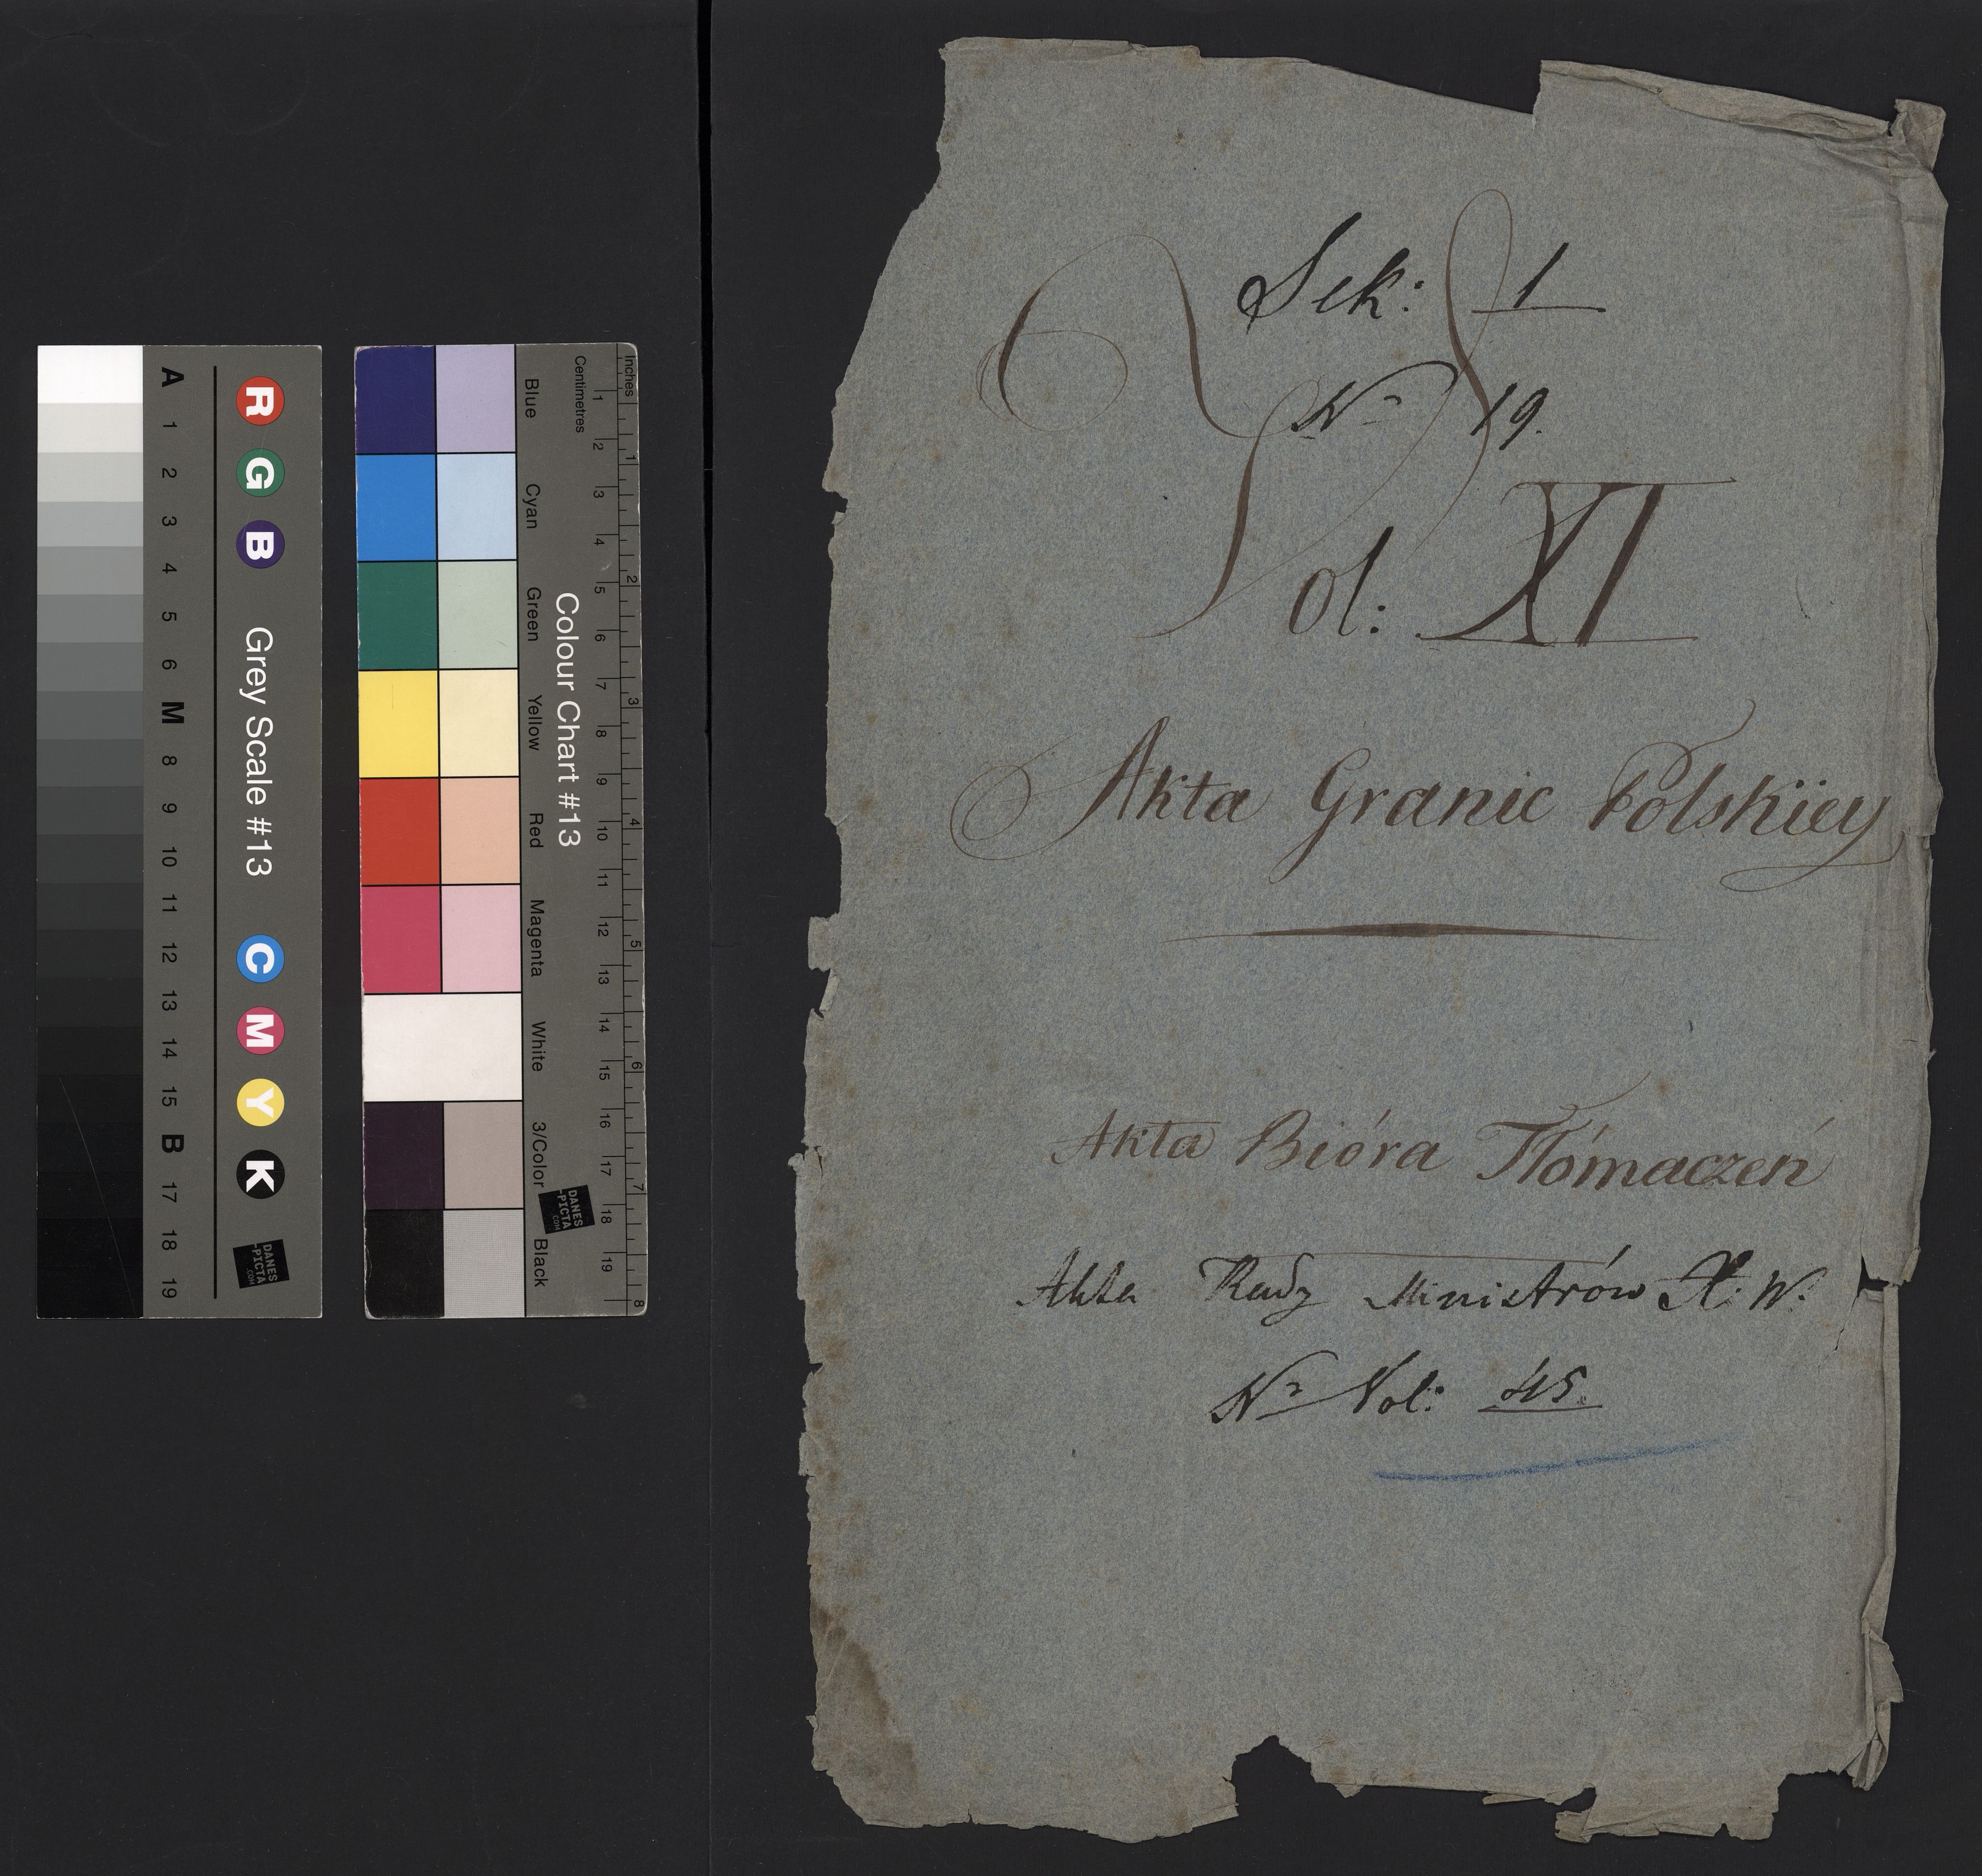 A 1 2 3 4 5 6 M 8 9 10 11 12 13 14 15 B 17 18 19
R G B Grey Scale #13 C M Y K
DANES
-PICTA
.COM
Blue Cyan Green Yellow Red Magenta White 3/Color Black
Colour Chart #13
DANES
-PICTA
.COM
Centimetres 1 2 3 4 5 6 7 8 9 10 11 12 13 14 15 16 17 18 19
Inches 1 2 3 4 5 6 7 8
Sek: 1
No 19.
Vol: XI
Akta Granic Polskiey
Akta Bióra Tłómaczeń
Akta Rady Ministrów X. W.
No Vol: 45.